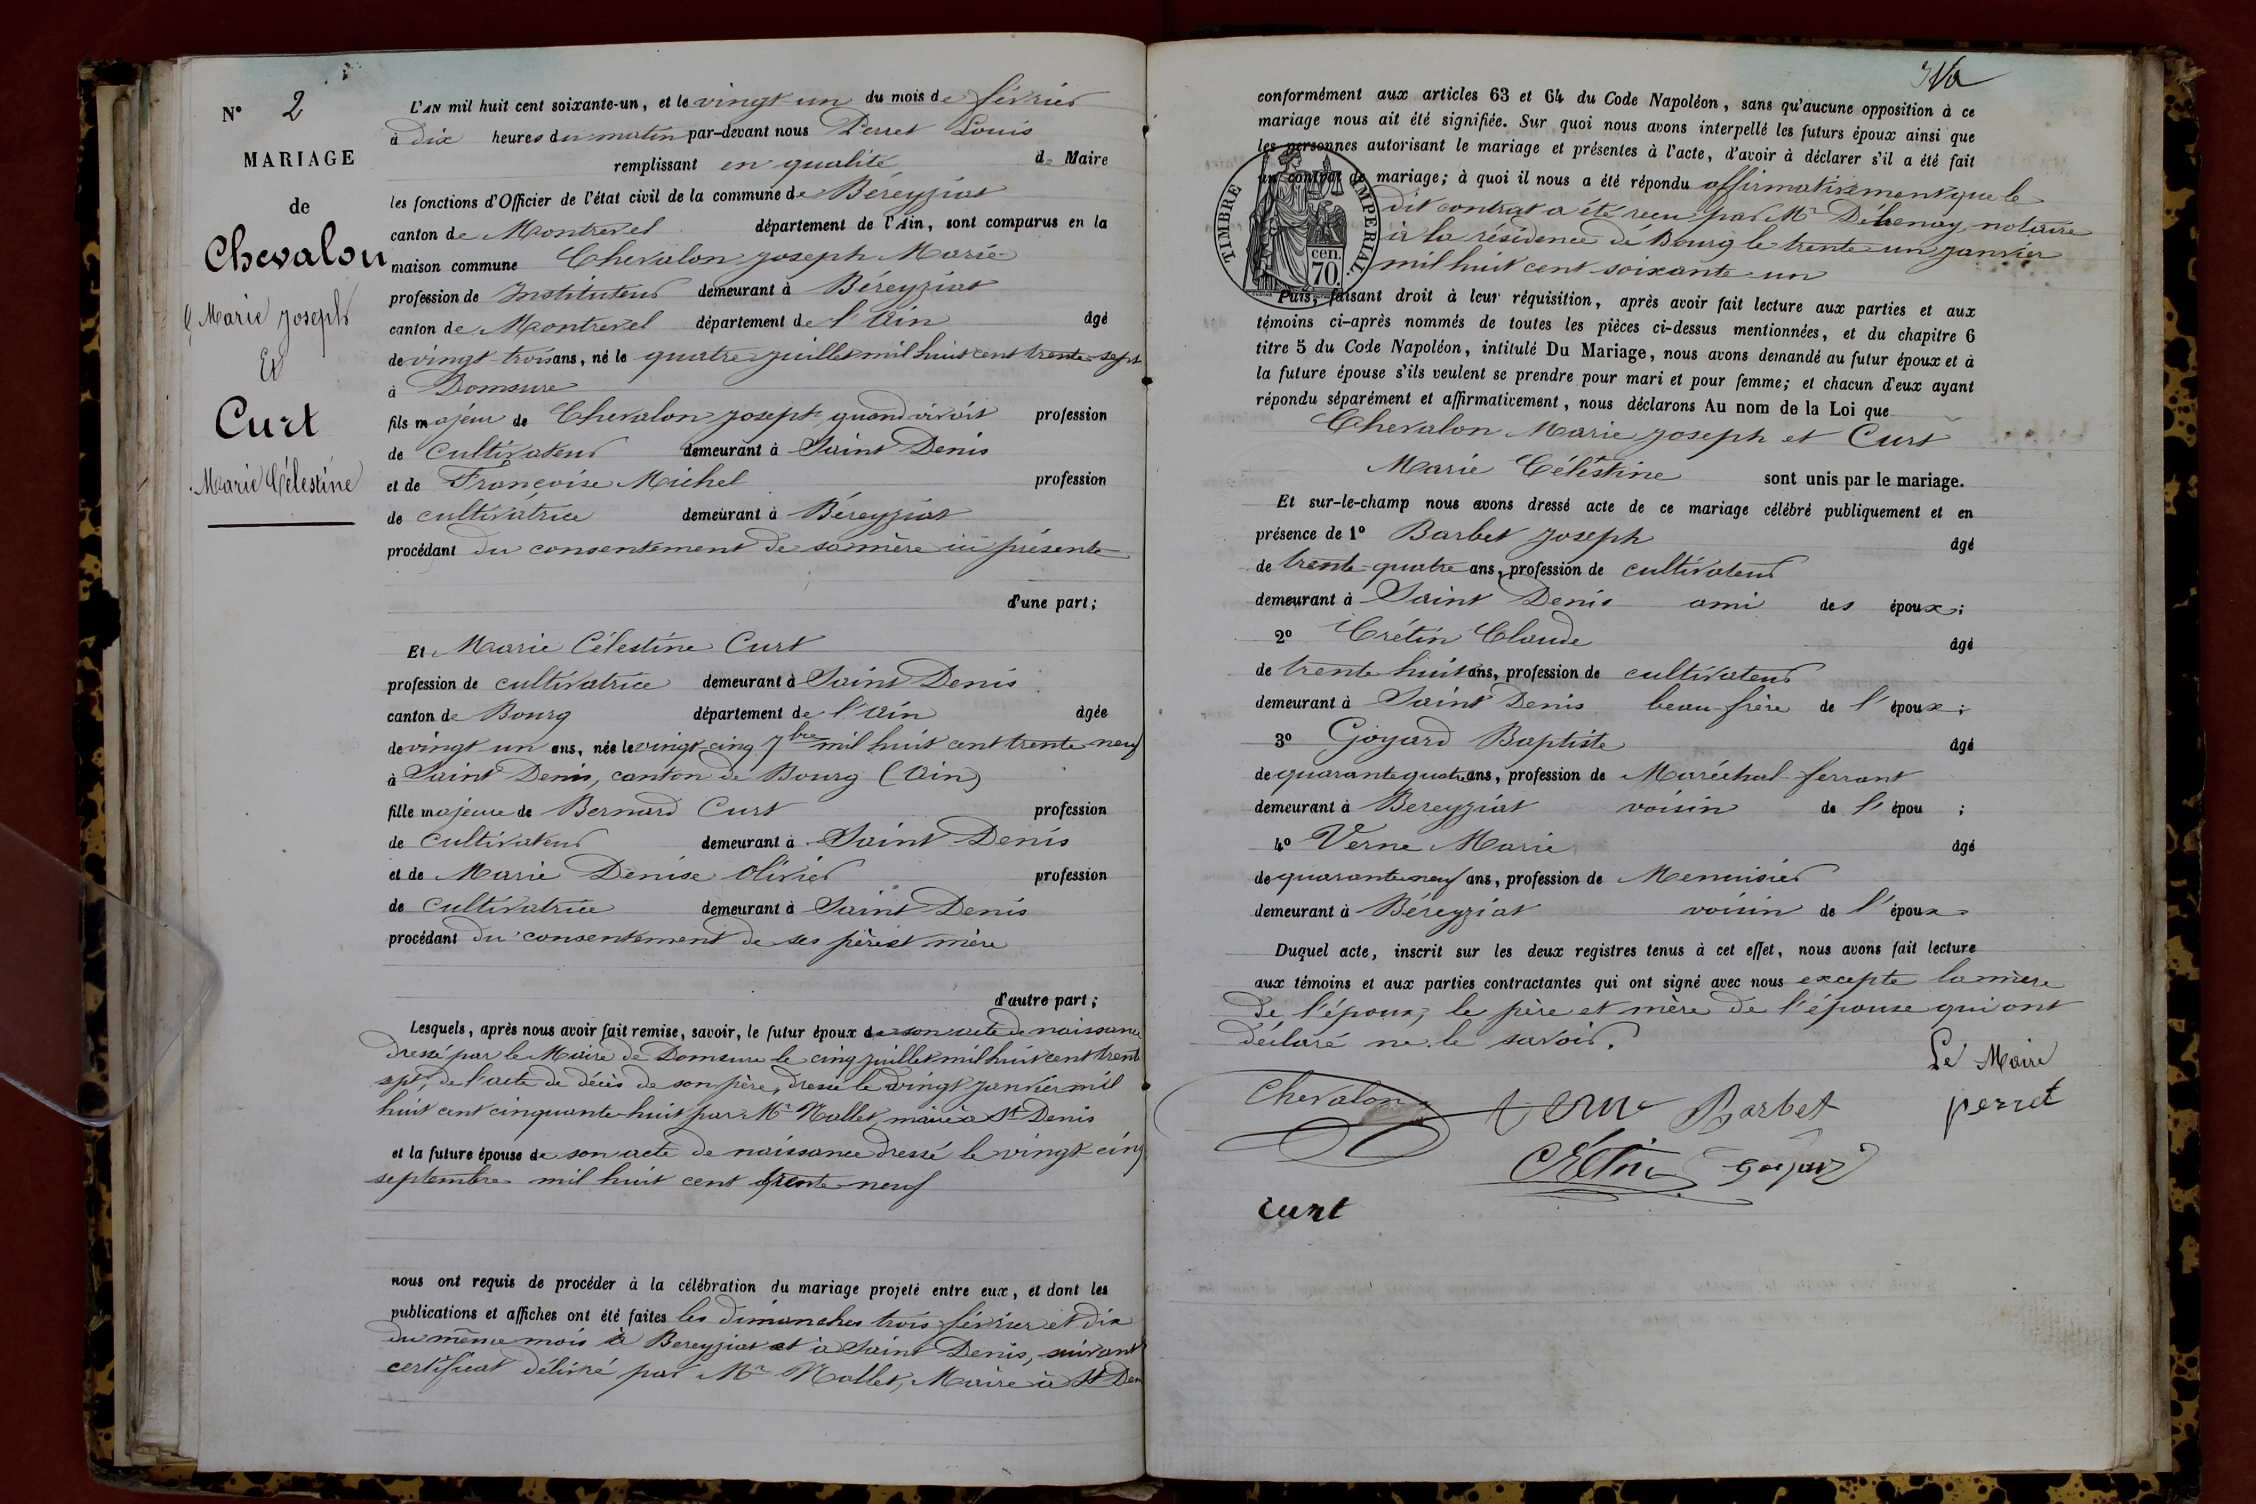 N° 2
MARIAGE
de
Chevalon
Marie Joseph
Et
Curt
Marie Célestine
L'AN mil huit cent soixante-un, et le vingt un du mois de février
à dix heures du matin par-devant nous Perret Louis
remplissant en qualité de Maire
les fonctions d'Officier de l'état civil de la commune de Béreyziat
canton de Montrevel département de l'Ain, sont comparus en la
maison commune Chevalon Joseph Marie
profession de Instituteur demeurant à Béreyziat
canton de Montrevel département de l'Ain âgé
de vingt-trois ans, né le quatre juillet mil huit cent trente-sept
à Domsure
fils majeur de Chevalon Joseph, quand vivait profession
de Cultivateur demeurant à Saint Denis
et de Françoise Michel profession
de cultivatrice demeurant à Béreyziat
procédant du consentement de sa mère ici présente
d'une part;
Et Marie Célestine Curt
profession de cultivatrice demeurant à Saint Denis
canton de Bourg département de l'Ain âgée
de vingt un ans, née le vingt-cinq 7bre mil huit cent trente neuf
à Saint Denis, canton de Bourg (Ain)
fille majeure de Bernard Curt profession
de Cultivateur demeurant à Saint Denis
et de Marie Denise Olivier profession
de Cultivatrice demeurant à Saint Denis
procédant du consentement de ses père et mère
d'autre part;
Lesquels, après nous avoir fait remise, savoir, le futur époux de son acte de naissance
dressé par le Maire de Domsure le cinq juillet mil huit cent trente
sept, de l'acte de décès de son père, dressé le vingt janvier mil
huit cent cinquante-huit par Mr Mallet, maire à St Denis
et la future épouse de son acte de naissance dressé le vingt-cinq
septembre mil huit cent trente neuf
nous ont requis de procéder à la célébration du mariage projeté entre eux, et dont les
publications et affiches ont été faites les dimanches trois février et dix
du même mois à Bereyziat et à Saint Denis, suivant
certificat délivré par Mr Mallet, Maire à St Den
conformément aux articles 63 et 64 du Code Napoléon, sans qu'aucune opposition à ce
mariage nous ait été signifiée. Sur quoi nous avons interpellé les futurs époux ainsi que
les personnes autorisant le mariage et présentes à l'acte, d'avoir à déclarer s'il a été fait
un contrat de mariage; à quoi il nous a été répondu affirmativement que le
dit contrat a été recu par Mr Débenay, notaire
à la résidence de Bourg le trente-un janvier
mil huit cent soixante-un
TIMBRE IMPERIAL.
cen.
70.
Puis, faisant droit à leur réquisition, après avoir fait lecture aux parties et aux
témoins ci-après nommés de toutes les pièces ci-dessus mentionnées, et du chapitre 6
titre 5 du Code Napoléon, intitulé Du Mariage, nous avons demandé au futur époux et à
la future épouse s'ils veulent se prendre pour mari et pour femme; et chacun d'eux ayant
répondu séparément et affirmativement, nous déclarons Au nom de la Loi que
Chevalon Marie Joseph et Curt
Marie Célestine sont unis par le mariage.
Et sur-le-champ nous avons dressé acte de ce mariage célébré publiquement et en
présence de 1° Barbet Joseph âgé
de trente-quatre ans, profession de cultivateur
demeurant à Saint Denis ami des époux;
2° Crétin Claude âgé
de trente huit ans, profession de cultivateur
demeurant à Saint Denis beau-frère de l'époux;
3° Goyard Baptiste âgé
de quarante quatre ans, profession de Maréchal-ferrant
demeurant à Bereyziat voisin de l'épou ;
4° Verne Marie âgé
de quarante neuf ans, profession de Menuisier
demeurant à Béreyziat voisin de l'époux
Duquel acte, inscrit sur les deux registres tenus à cet effet, nous avons fait lecture
aux témoins et aux parties contractantes qui ont signé avec nous excepte la mère
de l'époux, le père et mère de l'épouse qui ont
déclaré ne le savoir.
Le Maire
Chevalon Verne Barbet perret
Crétin goyard
curt